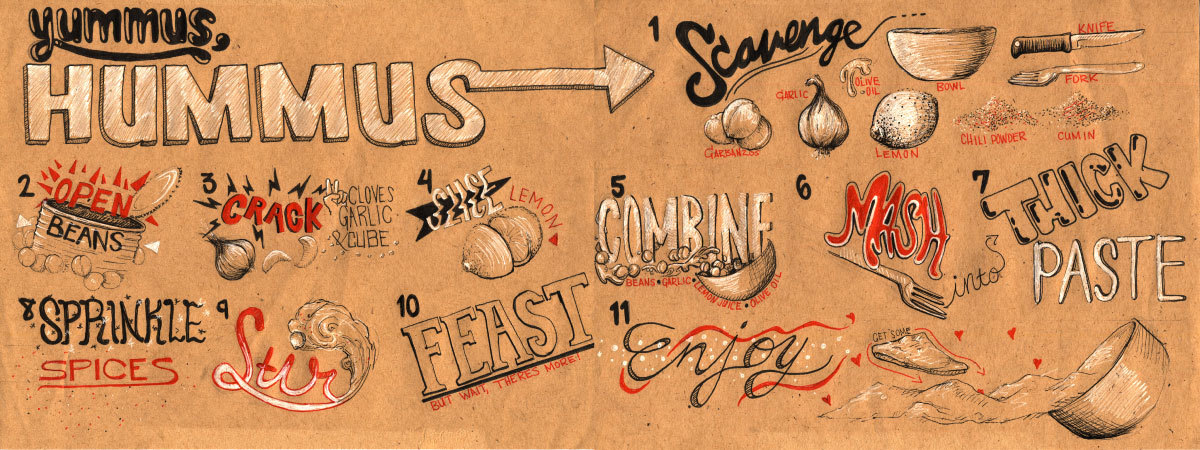 yummus,
HUMMUS
1 Scavenge
GARBANZOS
GARLIC
OLIVE
OIL
LEMON
BOWL
KNIFE
FORK
CHILI POWDER
CUMIN
2 OPEN
BEANS
3 CRACK
CLOVES
GARLIC
& CUBE
4 SLICE
LEMON
5 COMBINE
BEANS • GARLIC • LEMON JUICE • OLIVE OIL
6 MASH
into
7 THICK
PASTE
8 SPRINKLE
SPICES
9 Stir
10 FEAST
BUT WAIT, THERES MORE!
11 Enjoy
GET SOME